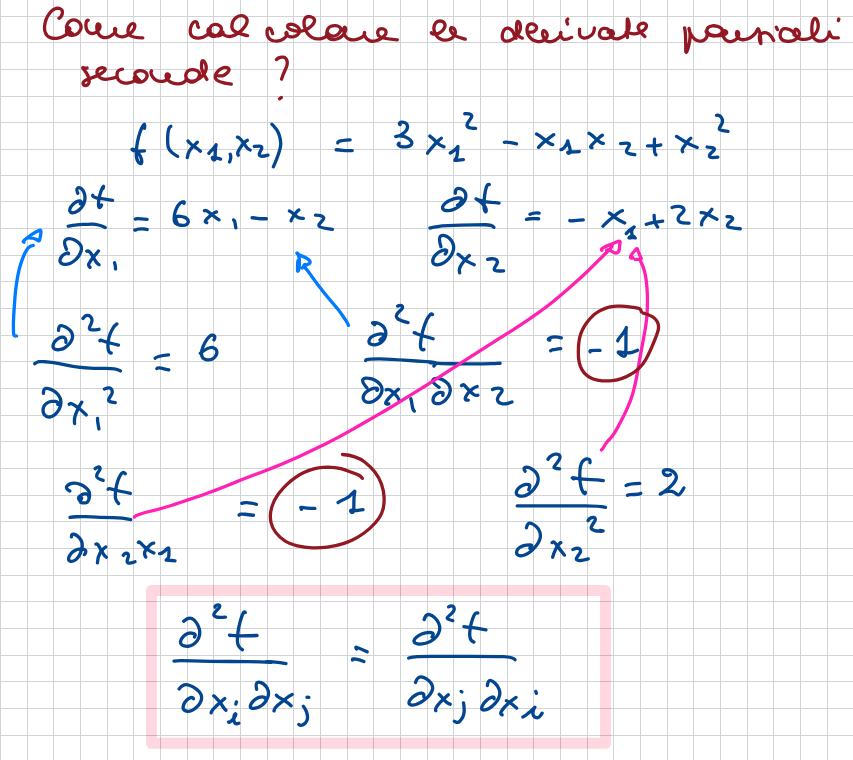 Come calcolare le derivate parziali
seconde ?
f(x₁,x₂) = 3x₁² - x₁x₂ + x₂²
∂f/∂x₁ = 6x₁ - x₂ ∂f/∂x₂ = - x₁ + 2x₂
∂²f/∂x₁² = 6 ∂²f/∂x₁∂x₂ = -1
∂²f/∂x₂x₁ = -1 ∂²f/∂x₂² = 2
∂²f/∂xᵢ∂xⱼ = ∂²f/∂xⱼ∂xᵢ